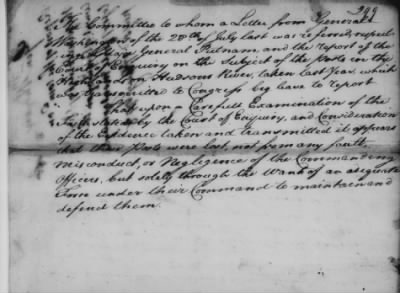 299
The Committee to whom a Letter from General
Washington of the 28th of July last was referred, respect-
ing Major General Putnam, and the report of the
Court of Enquiry on the Subject of the Posts in the
Highlands on Hudsons River, taken last Year which
was transmitted to Congress beg leave to report
That upon a Carefull Examination of the
Facts stated by the Court of Enquiry, and Consideration
of the Evidence taken and transmitted it appears
that those Posts were lost, not from any fault,
misconduct, or Negligence of the Commanding
Officers, but solely through the want of an adequate
Force under their Command to maintain and
defend them.